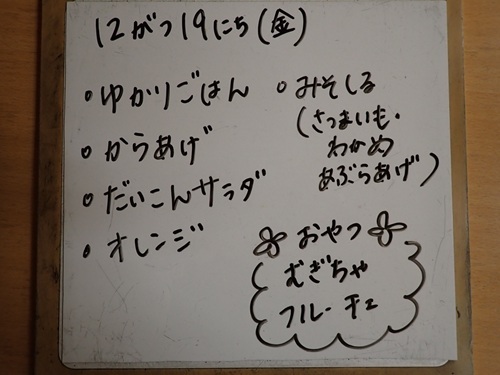 12がつ19にち(金)
・ゆかりごはん
・からあげ
・だいこんサラダ
・オレンジ
・みそしる
(さつまいも・
わかめ
あぶらあげ)
おやつ
むぎちゃ
フルーチェ